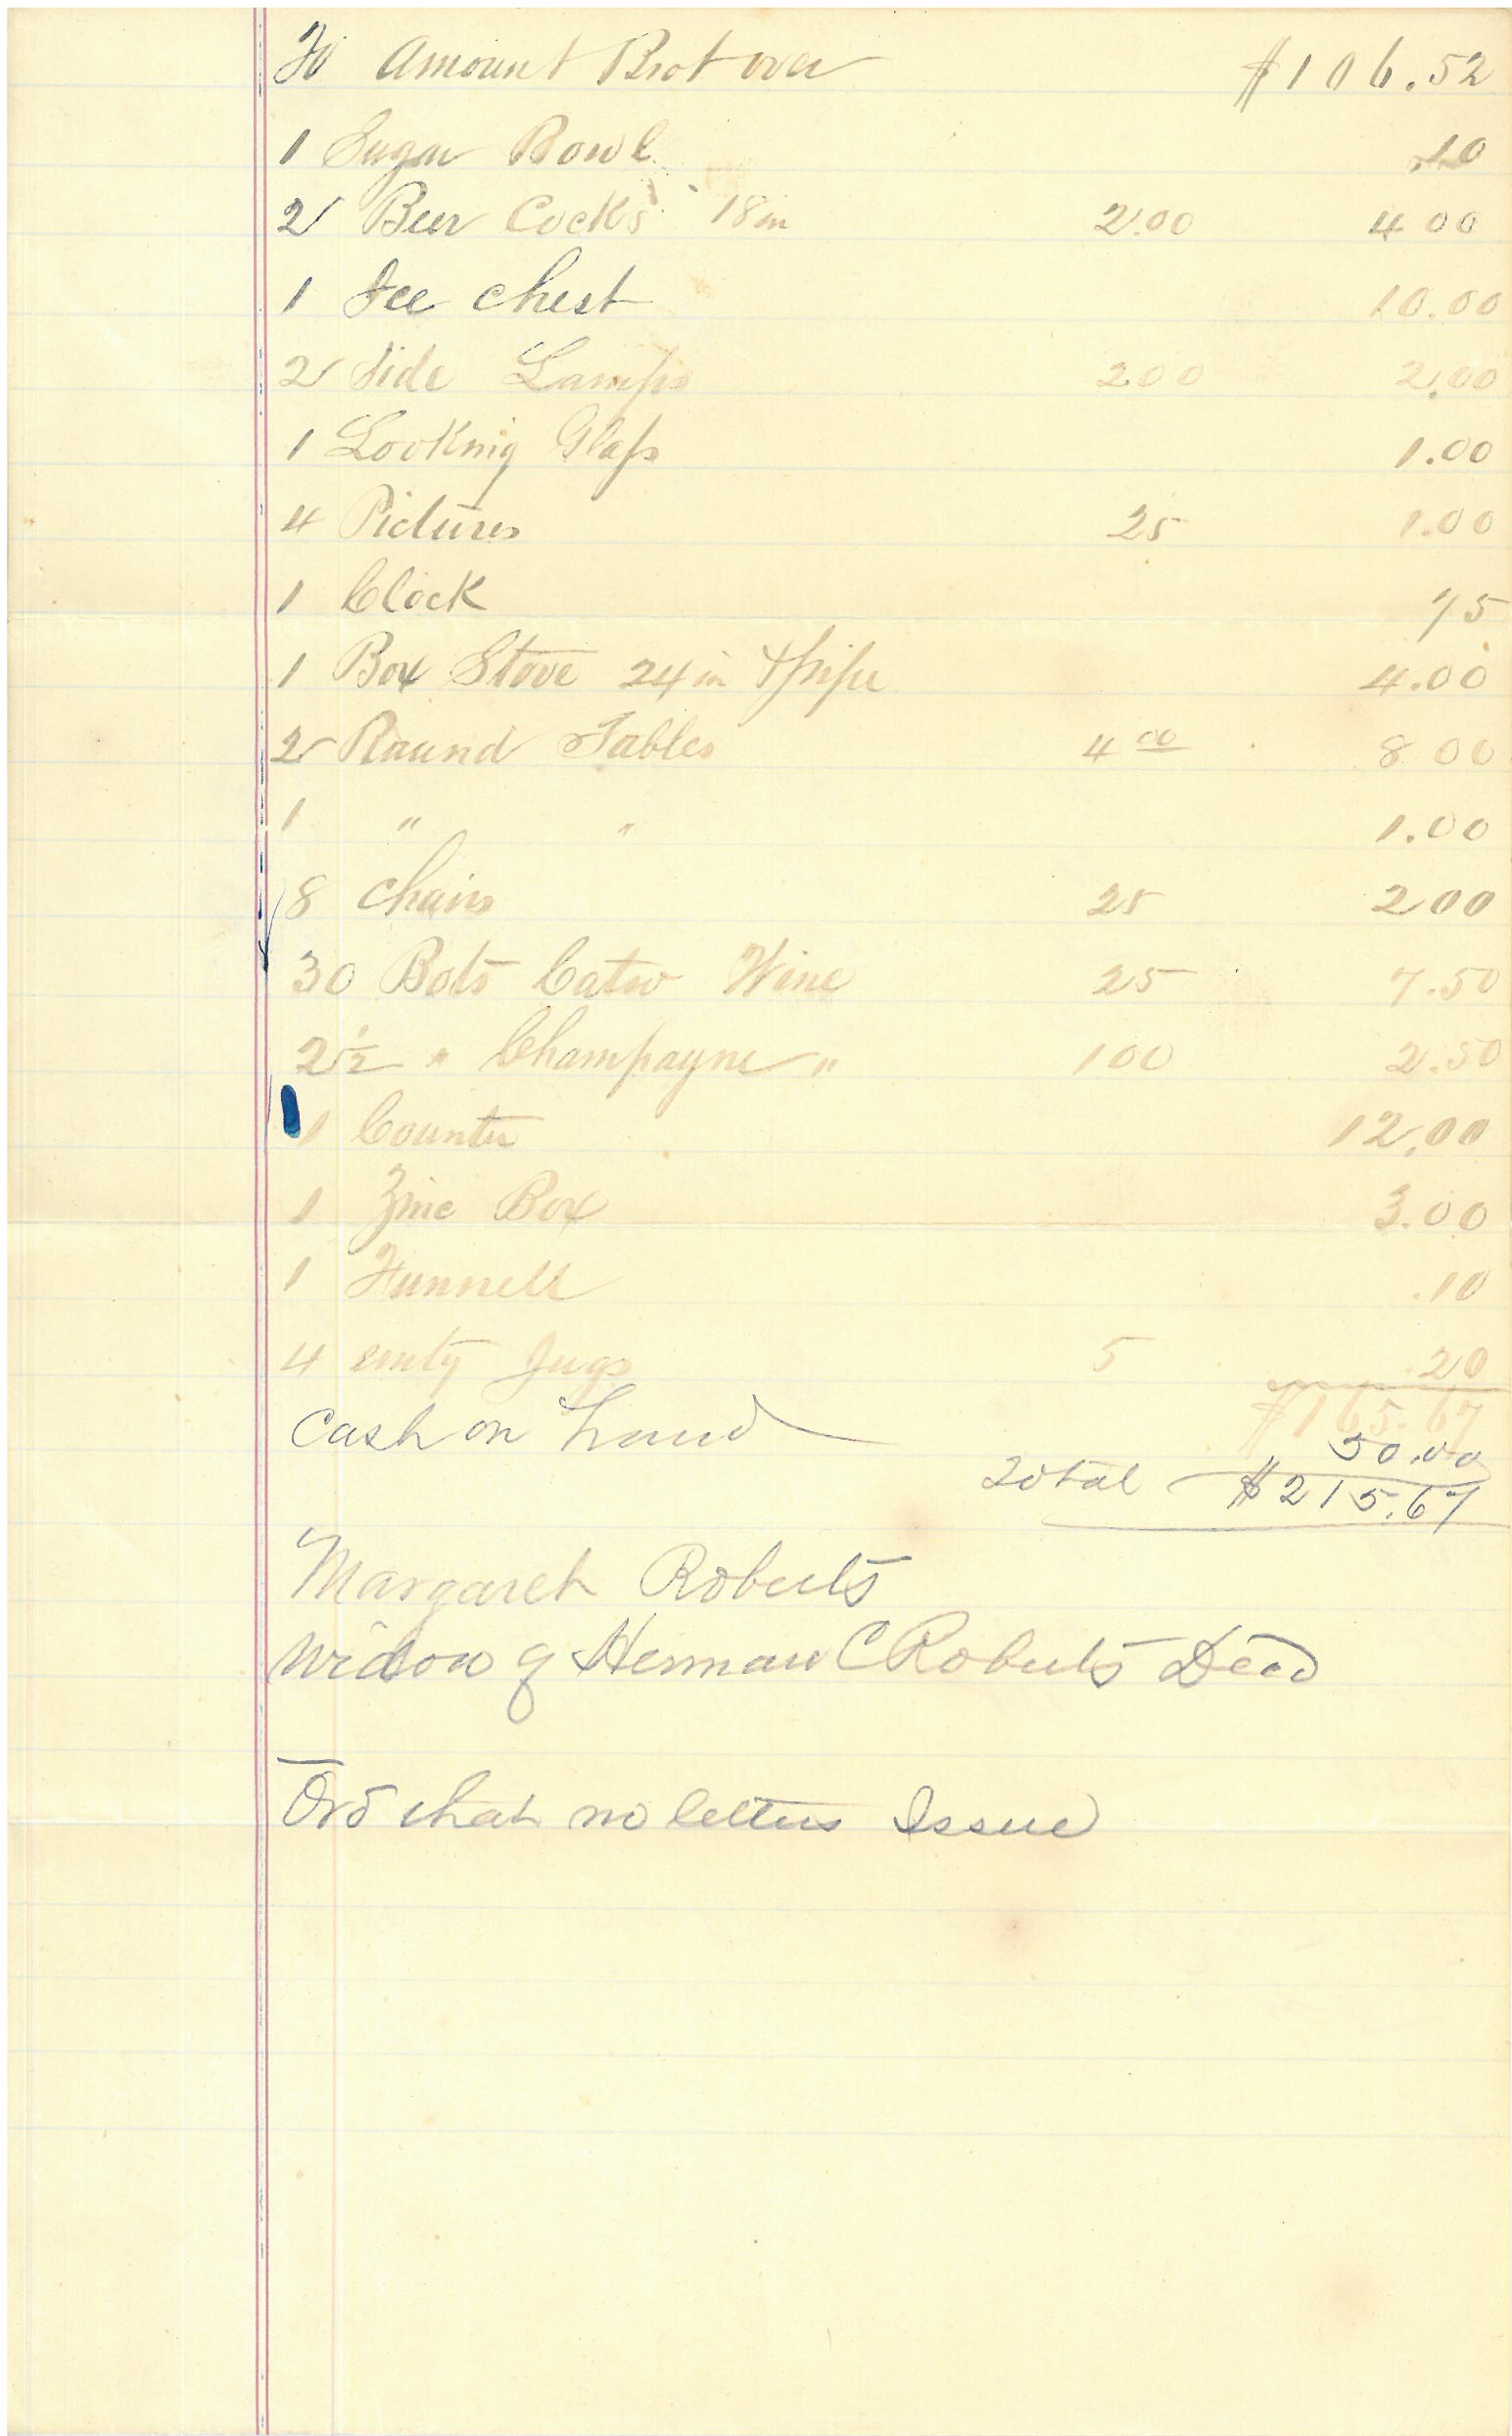 To Amount Brot over $106.52
1 Sugar Bowl .10
2 Beer Cocks 18 in 2.00 4 00
1 Ice Chest 10.00
2 Side Lamps 200 2.00
1 Looking Glass 1.00
4 Pictures 25 1.00
1 Clock 75
1 Box Stove 24 in & pipe 4.00
2 Round Tables 4 00 8 00
1 " " 1.00
8 Chairs 25 2 00
30 Bots Cataw Wine 25 7.50
2 1/2 " Champayne " 100 2.50
1 Counter 12.00
1 Zinc Box 3.00
1 Funnell .10
4 emty Jugs 5 .20
$165.67
Cash on hand 50.00
Total $215.67
Margaret Roberts
Widow of Herman C Roberts Decd
Ord that no letters Issue